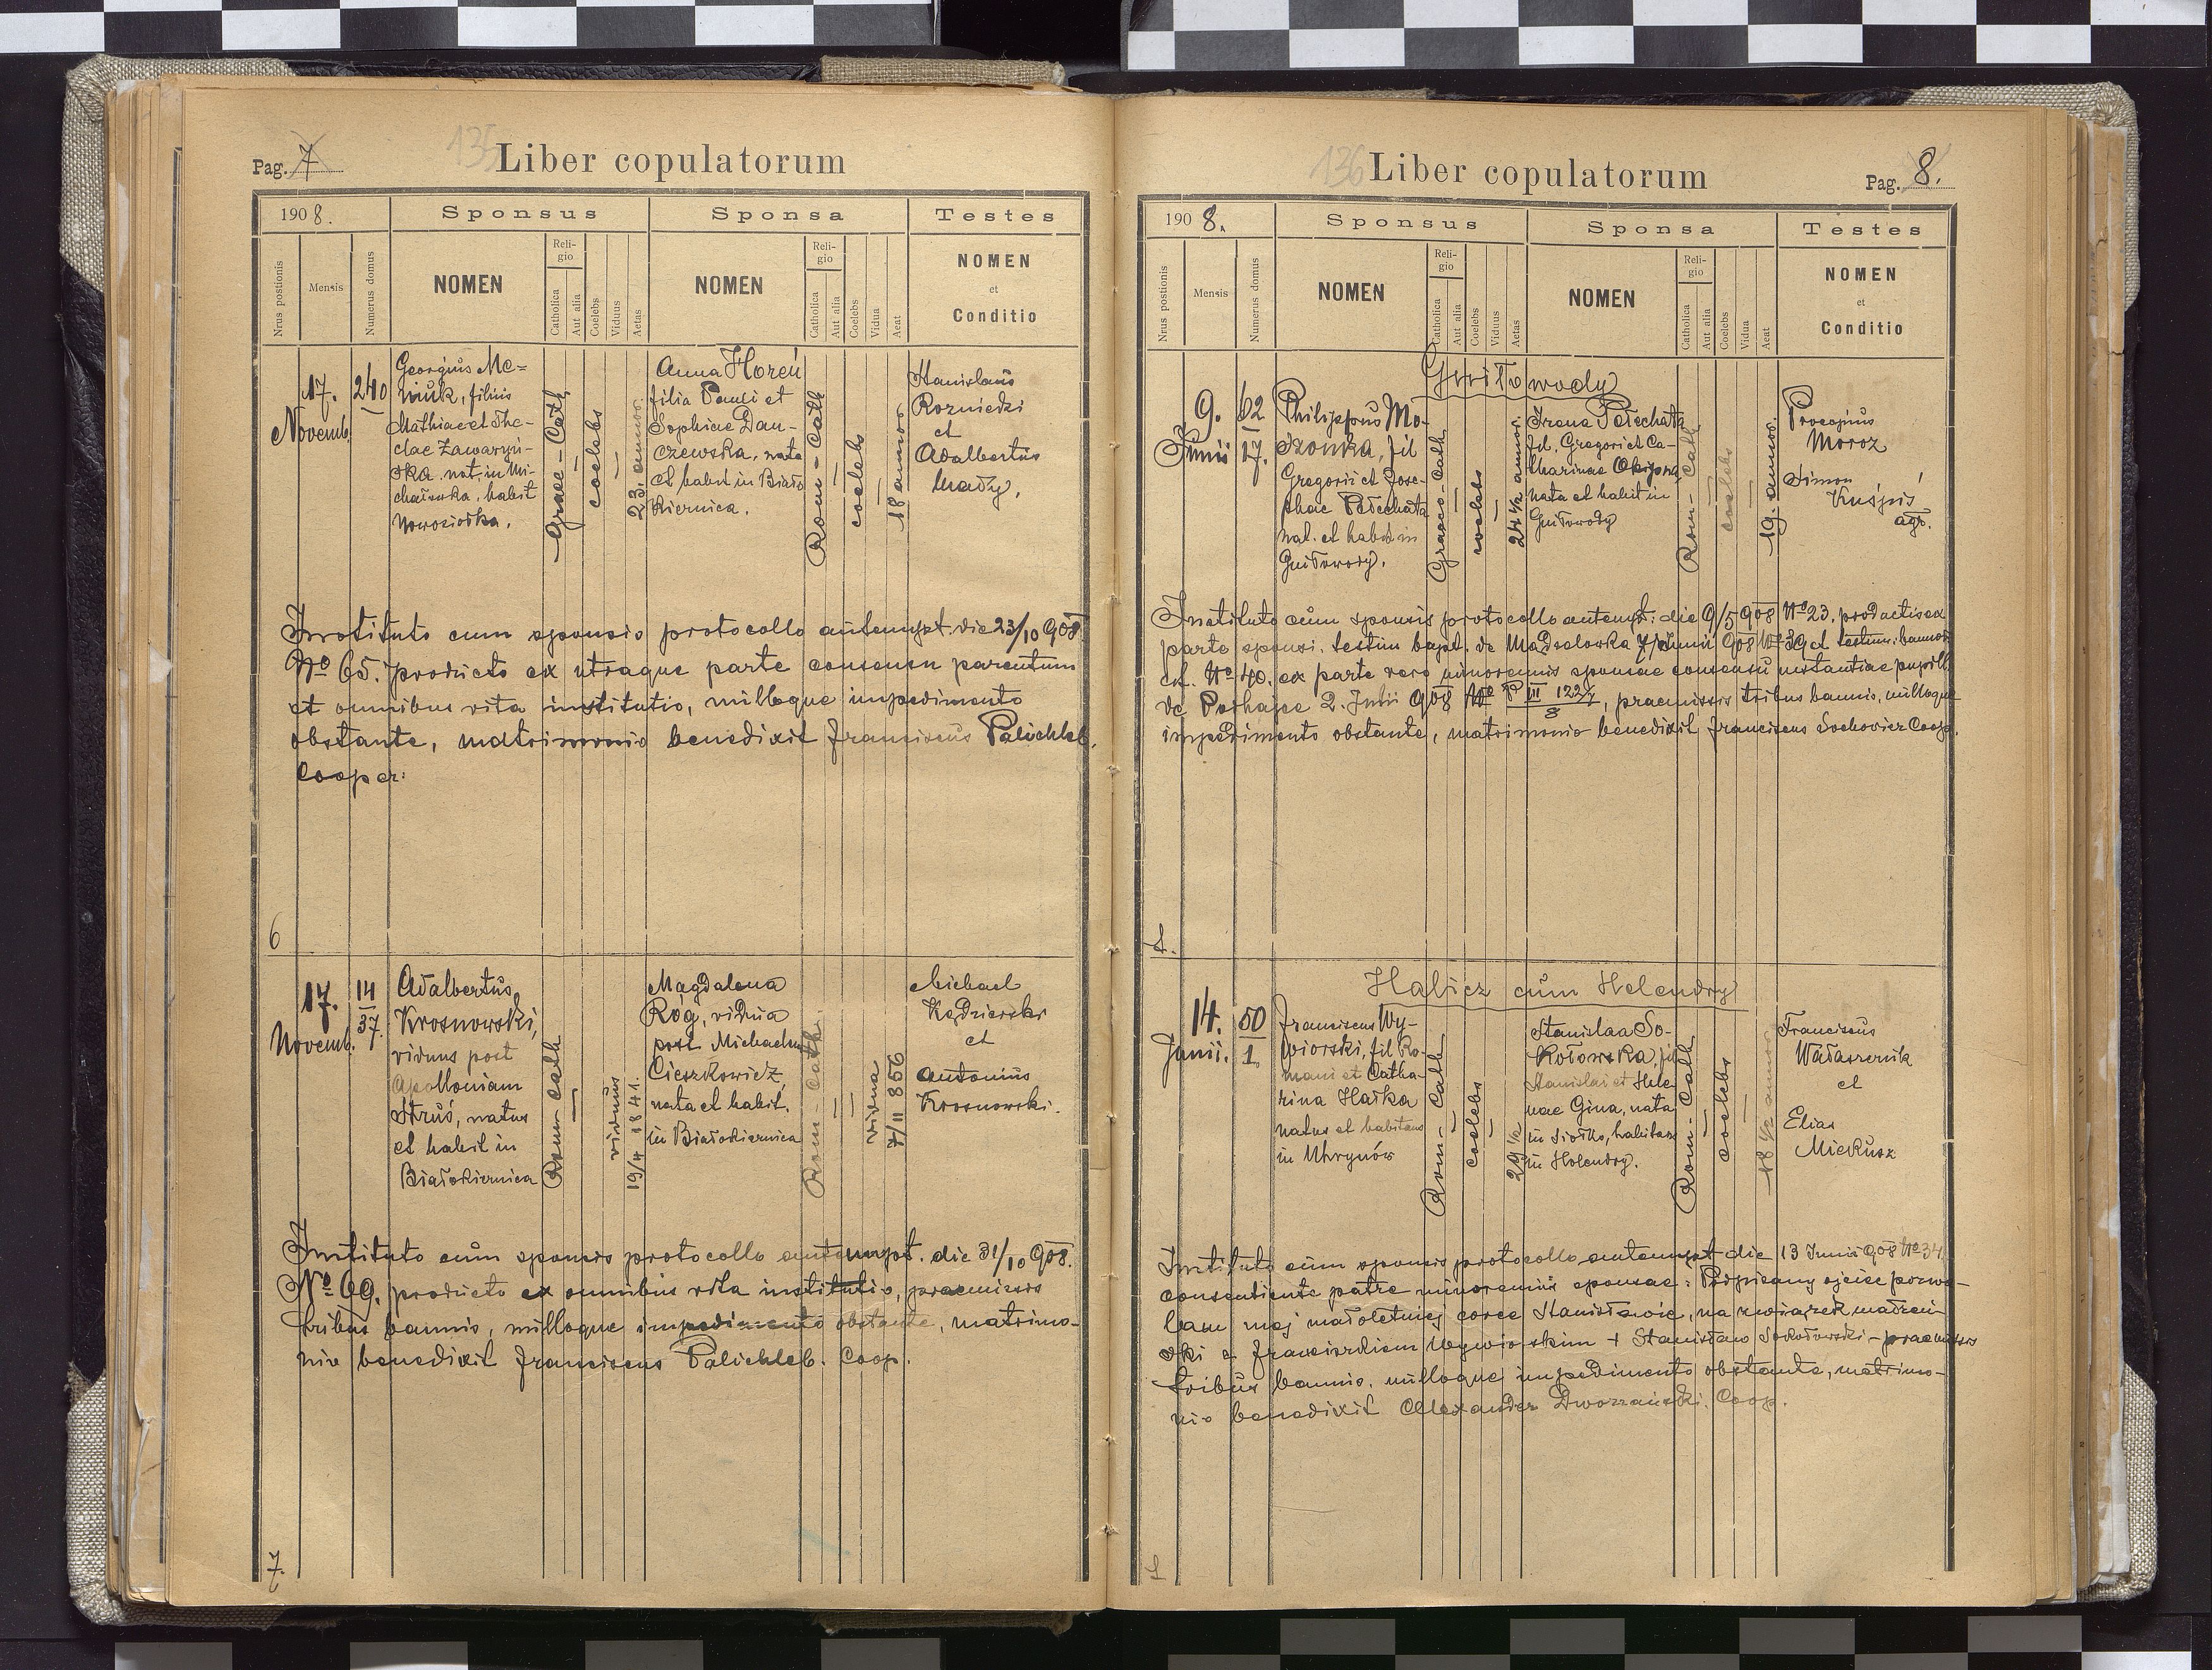 Pag. 7
135
Liber copulatorum
1908.
Sponsus
Sponsa
Testes
Nrus postionis
Mensis
Numerus domus
NOMEN
Religio
Catholica
Aut alia
Coelebs
Viduus
Aetas
NOMEN
Religio
Catholica
Aut alia
Coelebs
Vidua
Aeat
NOMEN
et
Conditio
6
17.
Novemb.
240
Georgius Me-
niuk, filius
Mathiae et The-
clae Zawaryń-
ska nat. in Mi-
chałowka, habit
Nowosiołka.
Graec-Cath
coelebs
23. annor.
Anna Horeń
filia Pauli et
Sophiae Dan-
czewska, nata
et habit in Biało
Kiernica.
Rom-Cath
coelebs
18 annor
Stanislaus
Rozniecki
et
Adalbertus
Mady.
Instituto cum sponsis protocollo antenupt. die 23/10 908
No 65. producto ex utraque parte consensu parentum
et omnibus rite institutis, nulloque impedimento
obstante, matrimonio benedixit Franciscus Palichleb.
Cooper:
7.
17.
Novemb.
14
37
Adalbertus
Krosnowski,
viduus post
Apolloniam
Struś, natus
et habit in
Białokiernica
Rom-Cath
viduus
19/4 1841.
Magdalena
Róg, vidua
post Michaelem
Cieszkowicz
nata et habit.
in Białokiernica
Rom-Cath.
vidua
7/11 856
Michael
Kędzierski
et
Antonius
Krosnowski.
Instituto cum sponsis protocollo antenupt. die 31/10 908.
No 69. producto ex omnibus rite institutis, praemissis
tribus bannis, nulloque impedimento obstante, matrimo-
nio benedixit Franciscus Palichleb. Coop.
136
Liber copulatorum
Pag. 8.
1908.
Sponsus
Sponsa
Testes
Nrus postionis
Mensis
Numerus domus
NOMEN
Religio
Catholica
Aut alia
Coelebs
Viduus
Aetas
NOMEN
Religio
Catholica
Aut alia
Coelebs
Vidua
Aeat
NOMEN
et
Conditio
Gniłowody
1.
9.
Junii
62
17.
Philippus Mo-
Gregorii et Jose-
phae Pełechata
nat. et habit in
Gniłowody.
Graeco-Cath
coelebs
24 1/2 annor.
Irena Pełechata
fil. Gregorii et Ca-
tharinae
nata et habit in
Gniłowody
Rom-Cath
coelebs
19. annor.
Procopius
Moroz
Simon
Kuśpiś
agr.
Instituto cum sponsis protocollo antenupt. die 9/5 908 No 23. productis ex
parte sponsi. testim bapt. de Madzelówka 7/Junii 908 No 39 et testim. bannor.
ex. No 40. ex parte vero minorennis sponsae consensu instantiae pupill.
de Podhajce 2. Junii 908 No P III 122/7 8, praemissis tribus bannis, nulloque
impedimento obstante, matrimonio benedixit Franciscus Sochowicz Coop.
Halicz cum Holendry
1
14.
Junii.
50
1
Franciscus Wy-
wiorski, fil Ro-
mani et Catha-
rina Hałka
natus et habitans
in Uhrynów
Rom-Cath
coelebs
29 1/2
Stanislaa So-
kołowska, fil
Stanislai et Hele
nae Gina, nata
in Siołko, habitans
in Holendry.
Rom-Cath
coelebs
18 1/2 annor
Franciscus
Wałaszczuk
et
Elias
Mickusz
Instituto cum sponsis protocollo antenupt die 13 Junii 908 No 34
consentiente patre minorennis sponsae: Podpisany ojciec pozwa-
lam mej małoletniej córce Stanisławie, na związek małżeń-
ski z Franciszkiem Wywiorskim + Stanisław Sokołowski - praemissis
tribus bannis, nulloque impedimento obstante, matrimo-
nio benedixit Alexander Dworzański. Coop.